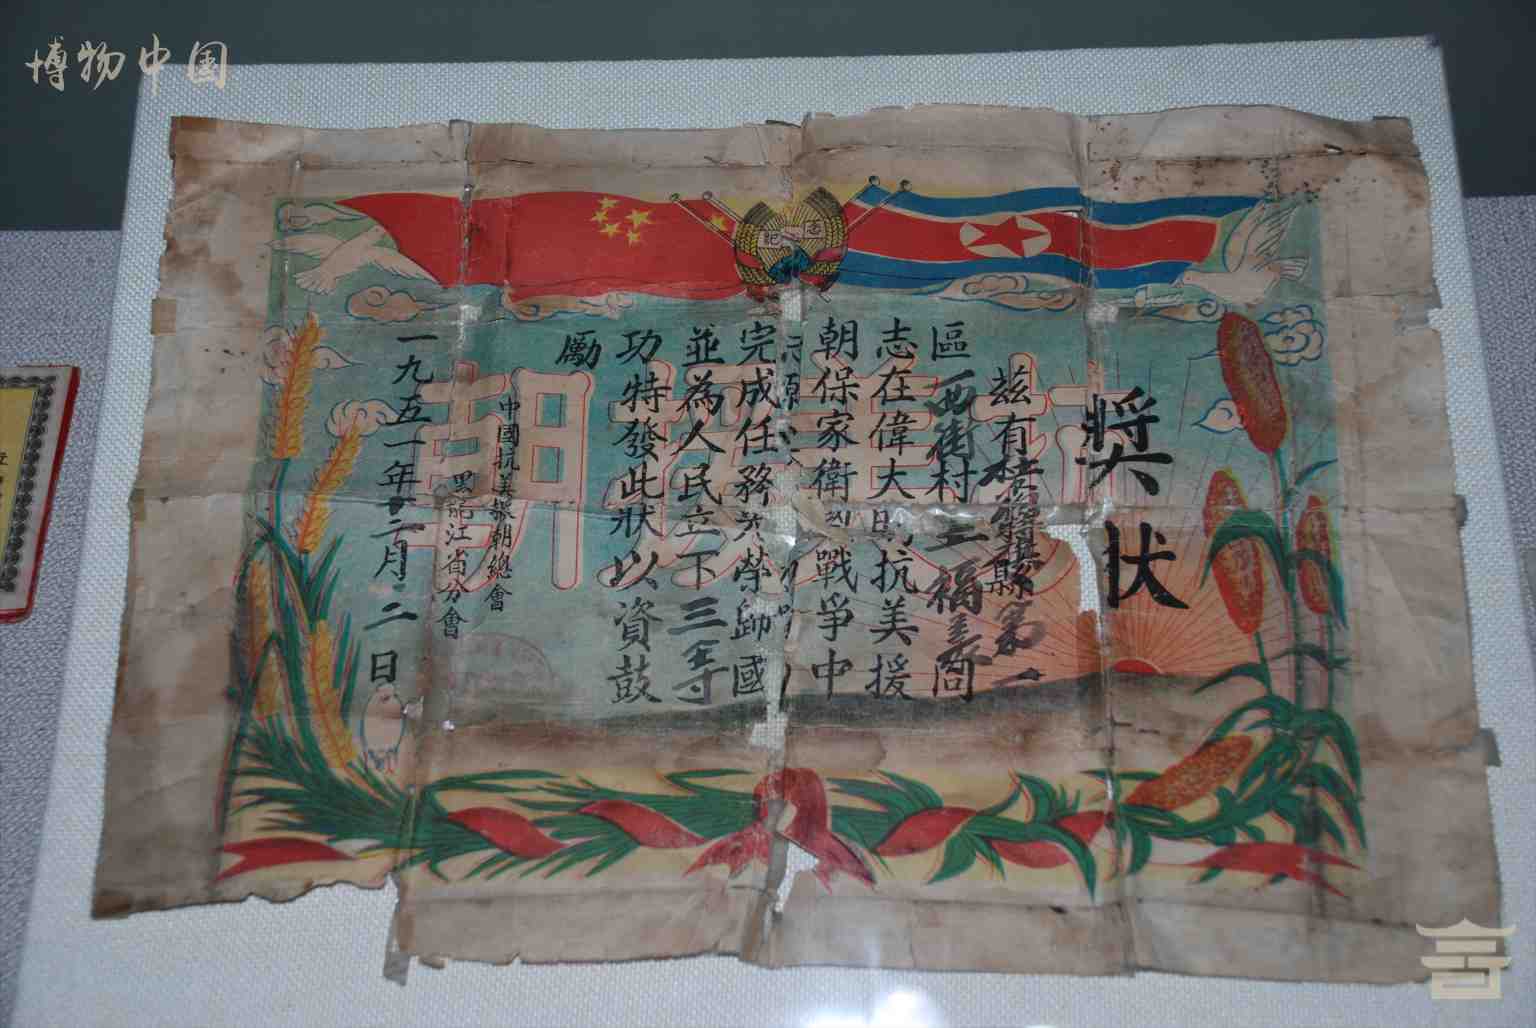 博物中国
記念
抗美援朝
奬状
茲有杜爾伯特旗縣第一
區西街村王福春同
志在偉大的抗美援
朝保家衛國戰爭中
完成任務光榮歸國
並為人民立下三等
功特發此狀以資鼓
勵
中國抗美援朝總會
黑龍江省分會
一九五一年十二月二日